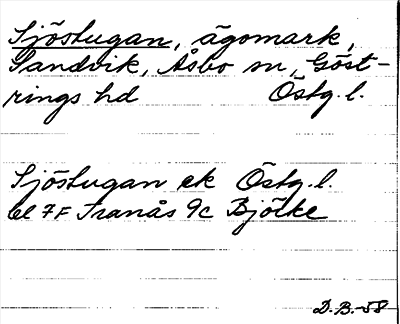 Sjöstugan, ägomark,
Sandvik, Åsbo sn, Göst-
rings hd Östg. l.
Sjöstugan ek Östg. l.
bl 7F Tranås 9c Bjölke
D.B.-58